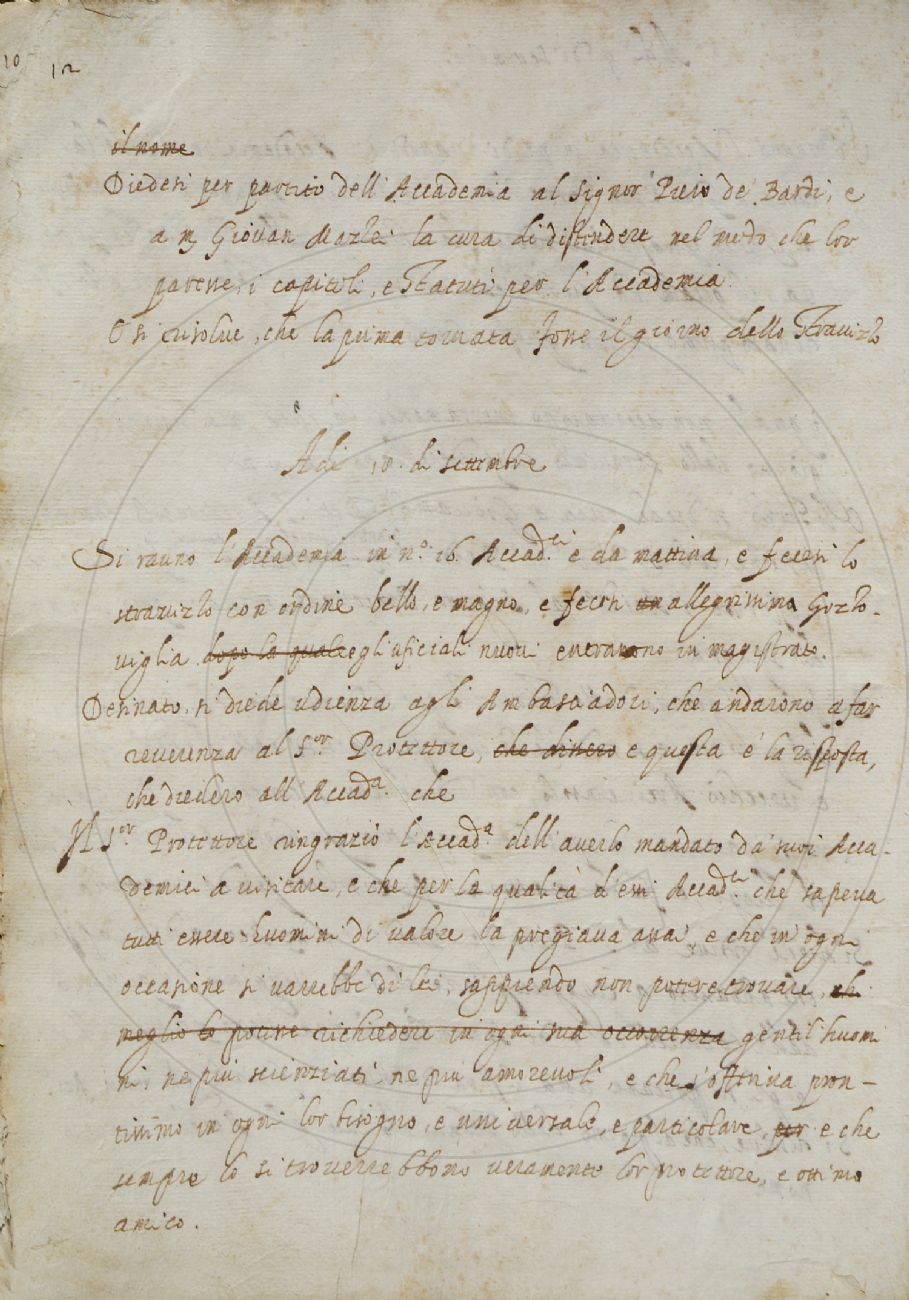 10 12
il nome
Diedesi per partito dell'Accademia al Signor Piero de' Bardi, e
a m. Giovan la cura di distendere nel modo, che lor
paresse i capitoli, e Statuti per l'Accademia.
E si risolve, che la prima tornata fosse il giorno dello Stravizzo
Adi 18. di settembre
Si raunò l'Accademia in n.o 16. Accad.ci e da mattina, e fecesi lo
stravizzo con ordine bello, e magno, e fecesi un allegrissima Gozzo-
viglia. dopo la quale e gli uficiali nuovi entrarono in magistrato.
Desinato, si diede udienza agli Ambasciadori, che andarono a far
reverenza al S.or Protettore, che dissero e questa è la risposta,
che diedero all'Accad.a che
Il S.or Protettore ringraziò l'Accad.a dell'averlo mandato da' suoi Acca-
demici a visitare, e che per la qualità d'essi Accad.ci che sapeva
tutti essere huomini di valore la pregiava assai, e che in ogni
occasione si varrebbe di lei, sappiendo non potere trovare, ch
meglio lo potesse richiedere in ogni sua occorrenza gentil'huomi
ni, ne più scienziati, ne più amorevoli, e che s'offeriva pron-
tissimo in ogni lor bisogno, e universale, e particolare, per e che
sempre lo si troverrebbono veramente lor protettore, e ottimo
amico.